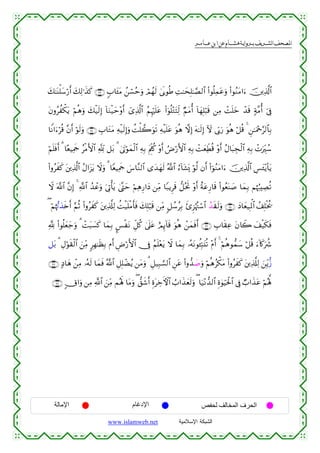 المصحف الشريف برواية هشام عن ابن عامر
ٱلَّذِينَ ءَامَنُوا۟ وَعَمِلُوا۟ ٱلصَّٰلِحَٰتِ طُوبَىٰ لَهُمْ وَحُسْنُ مَـَٔابٍ كَذَٰلِكَ أَرْسَلْنَٰكَ
فِىٓ أُمَّةٍ قَدْ خَلَتْ مِن قَبْلِهَآ أُمَمٌ لِّتَتْلُوَا۟ عَلَيْهِمُ ٱلَّذِىٓ أَوْحَيْنَآ إِلَيْكَ وَهُمْ يَكْفُرُونَ
بِٱلرَّحْمَٰنِ قُلْ هُوَ رَبِّى لَآ إِلَٰهَ إِلَّا هُوَ عَلَيْهِ تَوَكَّلْتُ وَإِلَيْهِ مَتَابِ وَلَوْ أَنَّ قُرْءَانًا
سُيِّرَتْ بِهِ ٱلْجِبَالُ أَوْ قُطِّعَتْ بِهِ ٱلْأَرْضُ أَوْ كُلِّمَ بِهِ ٱلْمَوْتَىٰ بَل لِّلَّهِ ٱلْأَمْرُ جَمِيعًا أَفَلَمْ
يَا۟يْـَٔسِ ٱلَّذِينَ ءَامَنُوٓا۟ أَن لَّوْ يَشَآءُ ٱللَّهُ لَهَدَى ٱلنَّاسَ جَمِيعًا وَلَا يَزَالُ ٱلَّذِينَ كَفَرُوا۟
تُصِيبُهُم بِمَا صَنَعُوا۟ قَارِعَةٌ أَوْ تَحُلُّ قَرِيبًا مِّن دَارِهِمْ حَتَّىٰ يَأْتِىَ وَعْدُ ٱللَّهِ إِنَّ ٱللَّهَ لَا
يُخْلِفُ ٱلْمِيعَادَ وَلَقَدُ ٱسْتُهْزِئَ بِرُسُلٍ مِّن قَبْلِكَ فَأَمْلَيْتُ لِلَّذِينَ كَفَرُوا۟ ثُمَّ أَخَذتُّهُمْ
فَكَيْفَ كَانَ عِقَابِ أَفَمَنْ هُوَ قَآئِمٌ عَلَىٰ كُلِّ نَفْسٍ بِمَا كَسَبَتْ وَجَعَلُوا۟ لِلَّهِ
شُرَكَآءَ قُلْ سَمُّوهُمْ أَمْ تُنَبِّـُٔونَهُ بِمَا لَا يَعْلَمُ فِى ٱلْأَرْضِ أَم بِظَٰهِرٍ مِّنَ ٱلْقَوْلِ بَل
زُيِّنَ لِلَّذِينَ كَفَرُوا۟ مَكْرُهُمْ وَصَدُّوا۟ عَنِ ٱلسَّبِيلِ وَمَن يُضْلِلِ ٱللَّهُ فَمَا لَهُ مِنْ هَادٍ
لَّهُمْ عَذَابٌ فِى ٱلْحَيَوٰةِ ٱلدُّنْيَا وَلَعَذَابُ ٱلْءَاخِرَةِ أَشَقُّ وَمَا لَهُم مِّنَ ٱللَّهِ مِن وَاقٍ
الحرف المخالف لحفص
الإدغام
الإمالة
الشبكة الإسلامية
www.islamweb.net